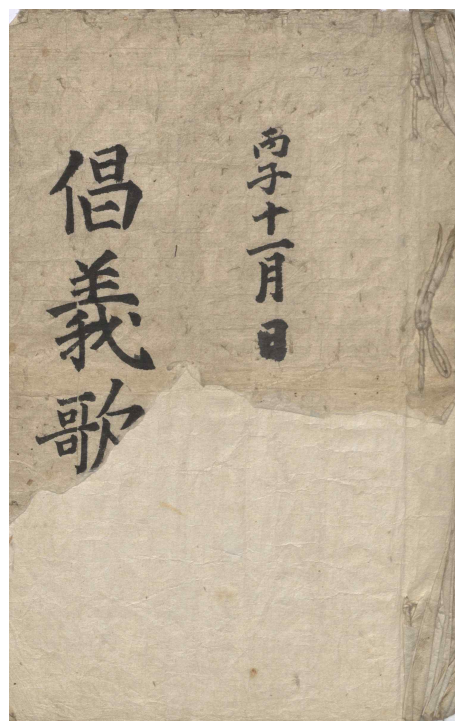 丙子十一月 日
倡義歌